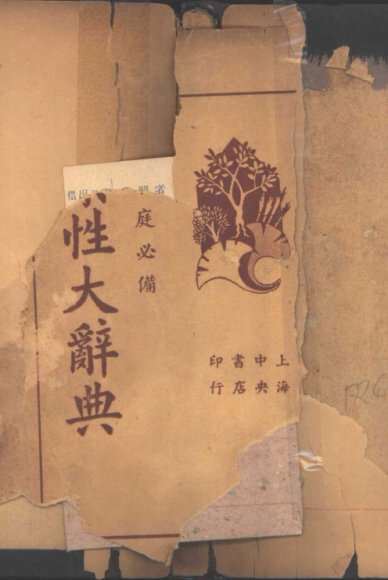 庭必備
性大辭典
上海
中央
書店
印行